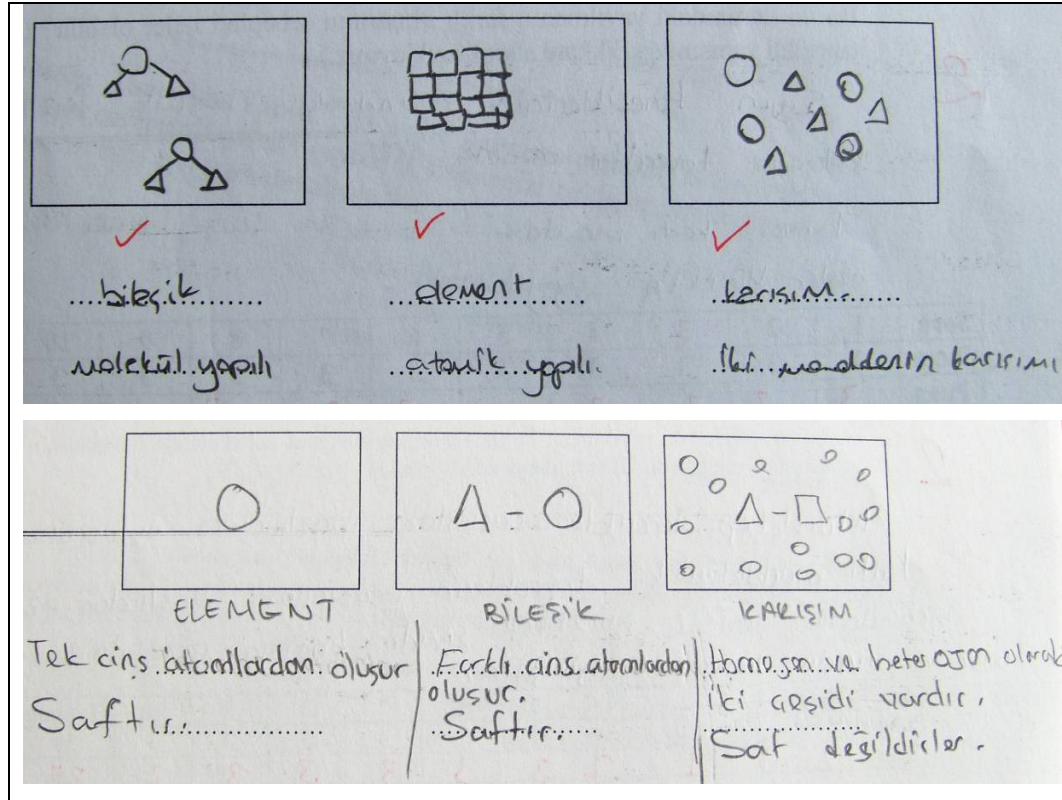 bileşik
element
karışım.
molekül yapılı
atomik yapılı.
iki maddenin karışımı
ELEMENT
BİLEŞİK
KARIŞIM
Tek cins atomlardan oluşur
Saftır.
Farklı cins atomlardan
oluşur.
Saftır.
Homojen ve heterojen olarak
iki çeşidi vardır.
Saf değildirler.